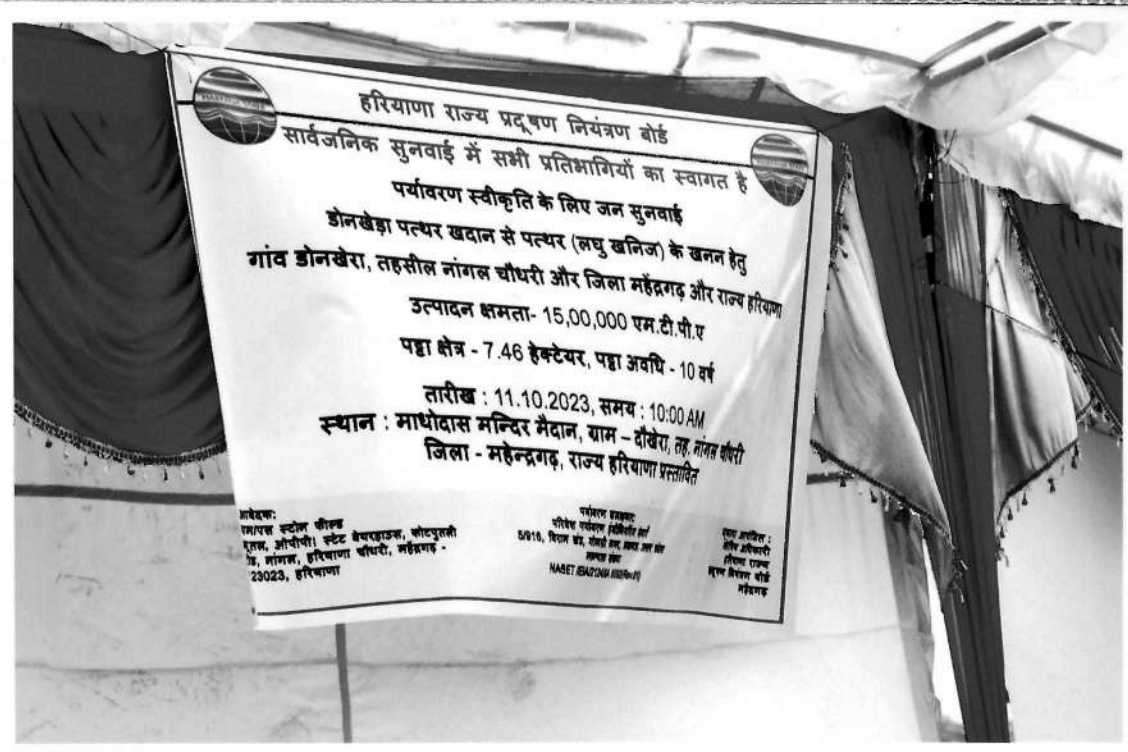 हरियाणा राज्य प्रदूषण नियंत्रण बोर्ड
सार्वजनिक सुनवाई में सभी प्रतिभागियों का स्वागत है
पर्यावरण स्वीकृति के लिए जन सुनवाई
डोनखेड़ा पत्थर खदान से पत्थर (लघु खनिज) के खनन हेतु
गांव डोनखेरा, तहसील नांगल चौधरी और जिला महेंद्रगढ़ और राज्य हरियाणा
उत्पादन क्षमता- 15,00,000 एम.टी.पी.ए
पट्टा क्षेत्र - 7.46 हेक्टेयर, पट्टा अवधि - 10 वर्ष
तारीख : 11.10.2023, समय : 10:00 AM
स्थान : माधोदास मन्दिर मैदान, ग्राम – दौखेरा, तह. नांगल चौधरी
जिला - महेन्द्रगढ़, राज्य हरियाणा प्रस्तावित
आवेदक:
स्टोन फील्ड
ओपीपी। स्टेट वेयरहाउस, कोटपुतली
नांगल, हरियाणा चौधरी, महेंद्रगढ़ -
23023, हरियाणा
पर्यावरण सलाहकार:
परिवेश पर्यावरण
5/916, विराम खंड,
NABET
क्षेत्रीय अधिकारी
हरियाणा राज्य
प्रदूषण नियंत्रण बोर्ड
महेंद्रगढ़